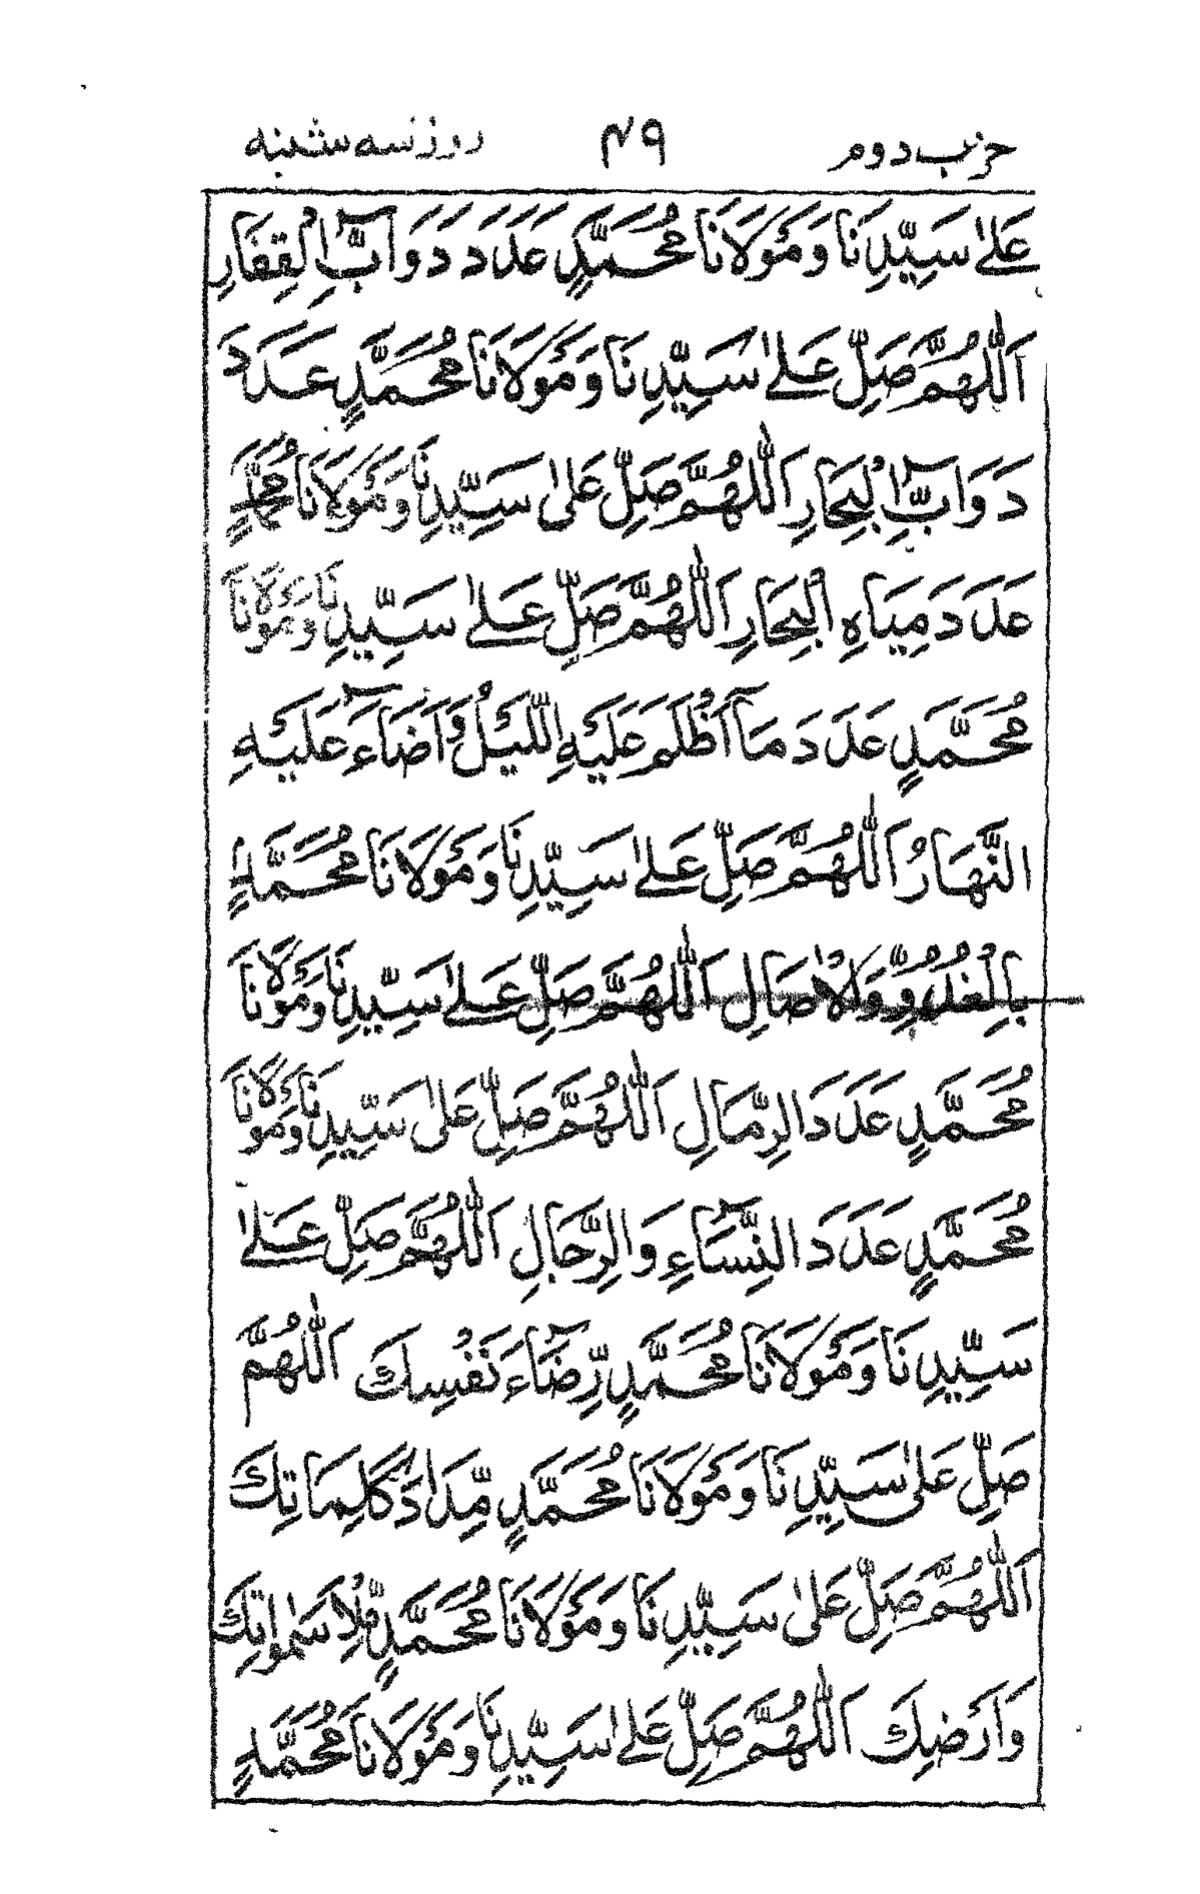 حزب دوم ۴۹ روز سه شنبه
عَلٰى سَيِّدِنَا وَمَوْلَانَا مُحَمَّدٍ عَدَدَ دَوَآبِّ الْقِفَارِ
اَللّٰهُمَّ صَلِّ عَلٰى سَيِّدِنَا وَمَوْلَانَا مُحَمَّدٍ عَدَدَ
دَوَآبِّ الْبِحَارِ اَللّٰهُمَّ صَلِّ عَلٰى سَيِّدِنَا وَمَوْلَانَا مُحَمَّدٍ
عَدَدَ مِيَاهِ الْبِحَارِ اَللّٰهُمَّ صَلِّ عَلٰى سَيِّدِنَا وَمَوْلَانَا
مُحَمَّدٍ عَدَدَ مَآ اَظْلَمَ عَلَيْهِ الَّيْلُ وَاَضَآءَ عَلَيْهِ
النَّهَارُ اَللّٰهُمَّ صَلِّ عَلٰى سَيِّدِنَا وَمَوْلَانَا مُحَمَّدٍ
بِالْغُدُوِّ وَالْاٰصَالِ اَللّٰهُمَّ صَلِّ عَلٰى سَيِّدِنَا وَمَوْلَانَا
مُحَمَّدٍ عَدَدَ الرِّمَالِ اَللّٰهُمَّ صَلِّ عَلٰى سَيِّدِنَا وَمَوْلَانَا
مُحَمَّدٍ عَدَدَ النِّسَآءِ وَالرِّجَالِ اَللّٰهُمَّ صَلِّ عَلٰى
سَيِّدِنَا وَمَوْلَانَا مُحَمَّدٍ رِّضَآءَ نَفْسِكَ اَللّٰهُمَّ
صَلِّ عَلٰى سَيِّدِنَا وَمَوْلَانَا مُحَمَّدٍ مِّدَادَ كَلِمَاتِكَ
اَللّٰهُمَّ صَلِّ عَلٰى سَيِّدِنَا وَمَوْلَانَا مُحَمَّدٍ مِّلْاَ سَمٰوَاتِكَ
وَاَرْضِكَ اَللّٰهُمَّ صَلِّ عَلٰى سَيِّدِنَا وَمَوْلَانَا مُحَمَّدٍ